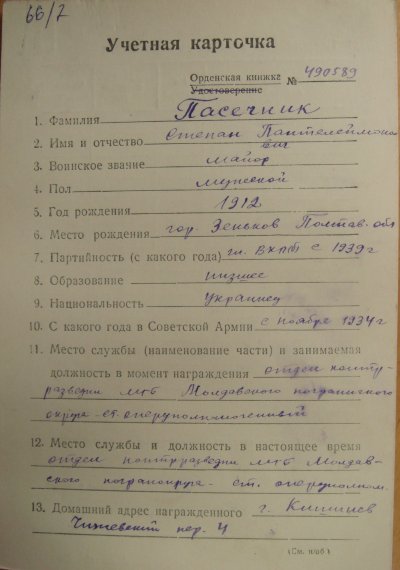 66/7
Учетная карточка
Орденская книжка
Удостоверение № 490589
1. Фамилия Пасечник
2. Имя и отчество Степан Пантелеймоно
вич
3. Воинское звание майор
4. Пол мужской
5. Год рождения 1912
6. Место рождения гор. Зеньков Полтав. обл
7. Партийность (с какого года) чл. ВКПб с 1939 г
8. Образование низшее
9. Национальность украинец
10. С какого года в Советской Армии с ноября 1934 г
11. Место службы (наименование части) и занимаемая
должность в момент награждения отдел контр-
разведки МГБ Молдавского пограничного
округа - ст. оперуполномоченный
12. Место службы и должность в настоящее время
отдел контрразведки МГБ Молдав-
ского погранокруга - ст. оперуполном.
13. Домашний адрес награжденного г. Кишинев
Чижевский пер. 4
(См. н/об.)